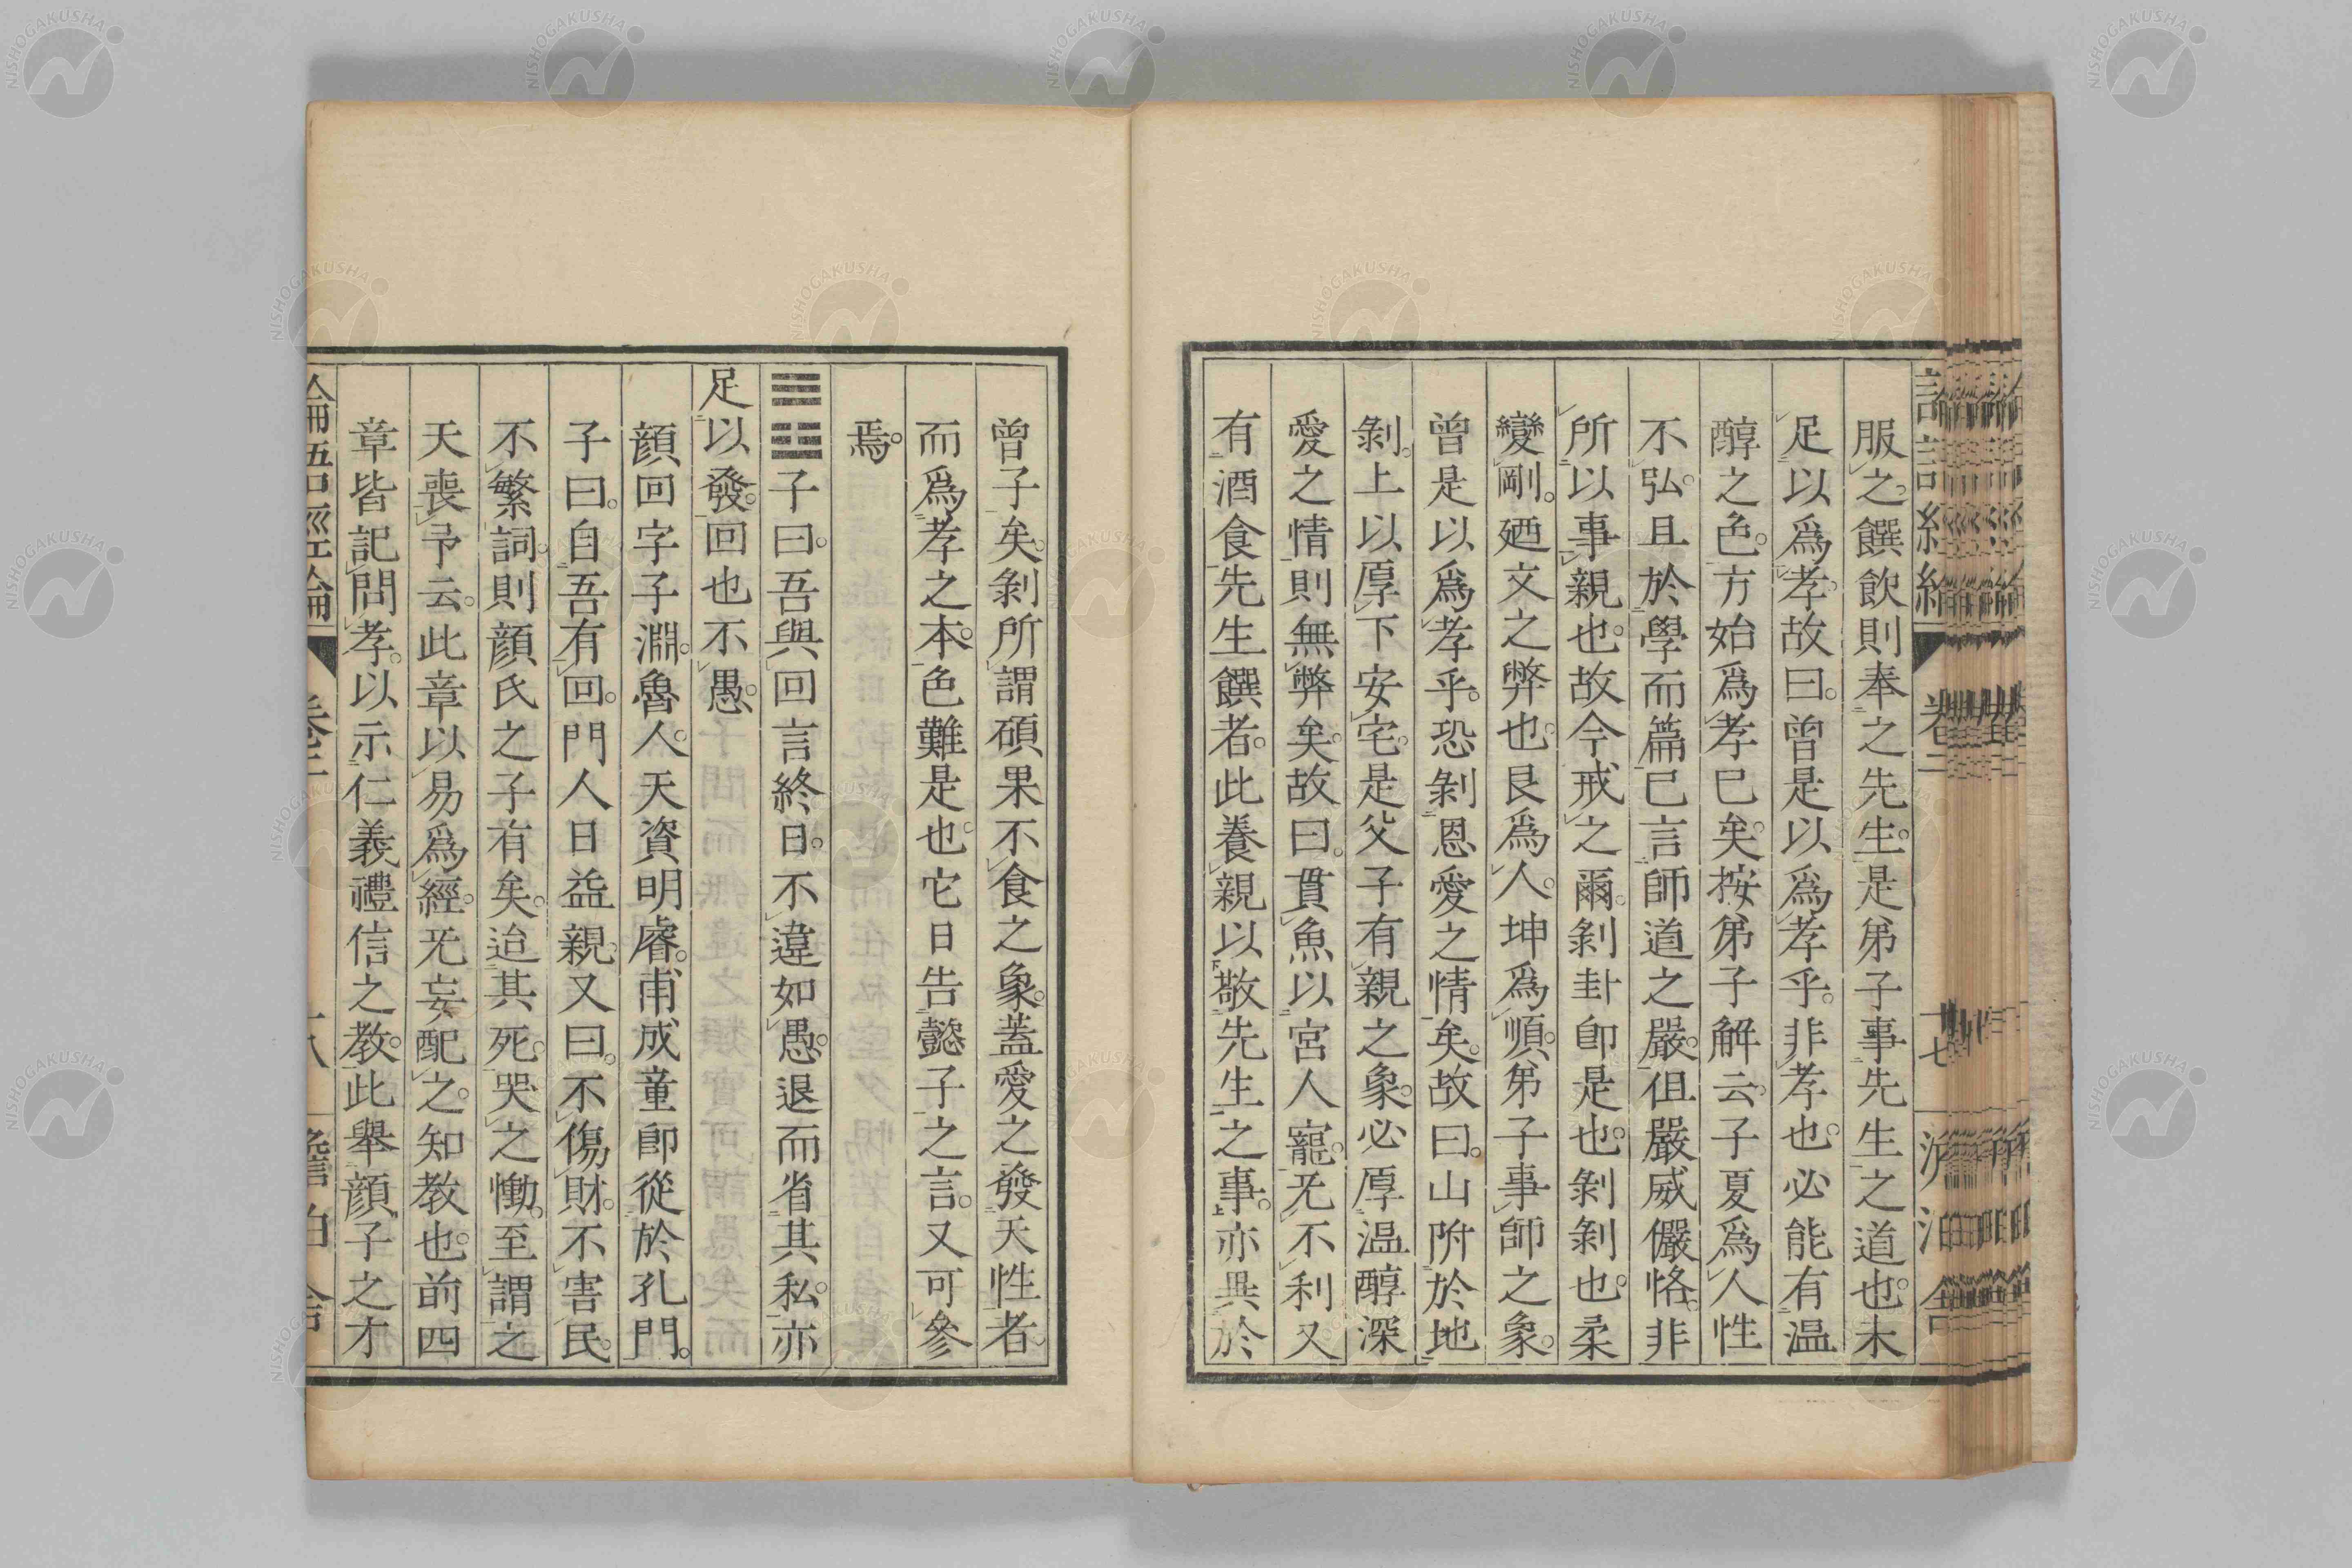 服之饌飲則奉之先生。是弟子事先生之道也。未
足以爲孝。故曰。曾是以爲孝乎。非孝也。必能有温
醇之色。方始爲孝已矣。按弟子解云。子夏爲人性
不弘。且於學而篇已言師道之嚴。但嚴威儼恪。非
所以事親也。故今戒之爾。剝卦卽是也。剝剝也。柔
變剛。廼文之弊也。艮爲人。坤爲順。弟子事師之象。
曾是以爲孝乎。恐剝恩愛之情矣。故曰。山附於地
剝。上以厚下安宅。是父子有親之象。必厚温醇深
愛之情則無弊矣。故曰。貫魚以宮人寵。无不利。又
有酒食先生饌者。此養親以敬先生之事。亦異於
曾子矣。剝所謂碩果不食之象。蓋愛之發天性者
而爲孝之本。色難是也。它日告懿子之言。又可參
焉。
䷋子曰。吾與回言終日。不違如愚。退而省其私。亦
足以發。回也不愚。
顏回字子淵。魯人。天資明睿。甫成童卽從於孔門。
子曰。自吾有回。門人日益親。又曰。不傷財。不害民。
不繁詞。則顏氏之子有矣。迨其死。哭之慟。至謂之
天喪予云。此章以易爲經。无妄配之。知教也。前四
章皆記問孝。以示仁義禮信之教。此舉顏子之才
論語經論 卷二 十八